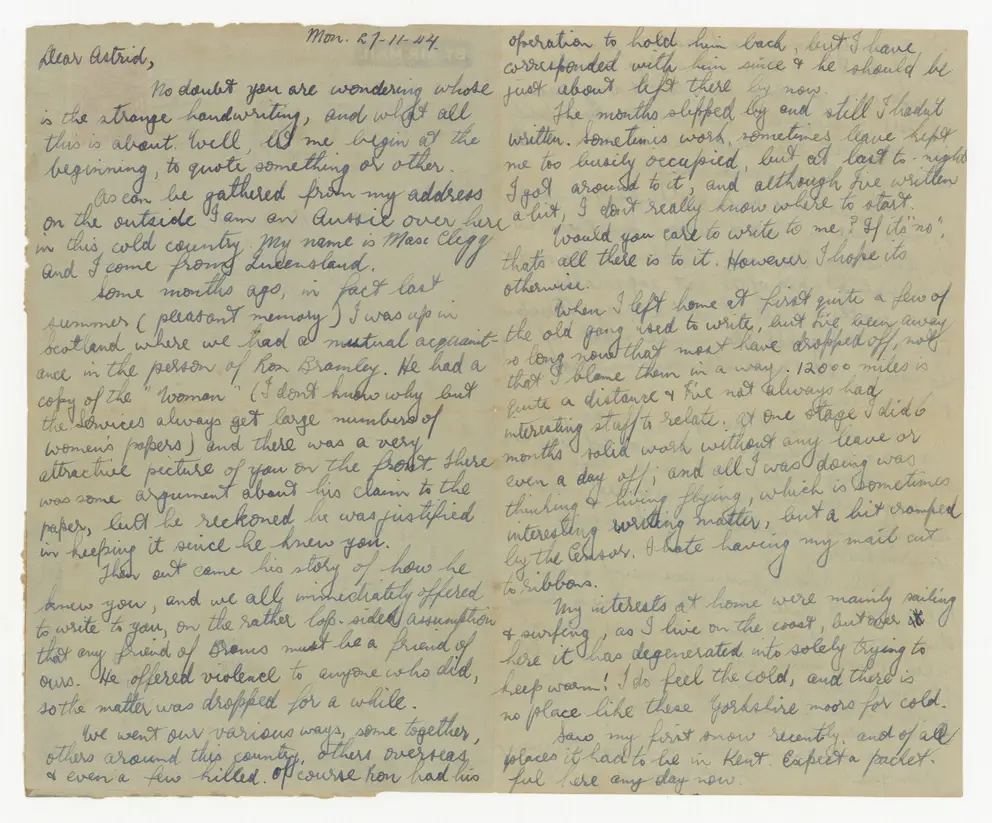 Mon. 27-11-44
Dear Astrid,
No doubt you are wondering whose
is the strange handwriting, and what all
this is about. Well, let me begin at the
beginning, to quote something or other.
As can be gathered from my address
on the outside I am an Aussie over here
in this cold country. My name is Clegg
and I come from Queensland.
Some months ago, in fact last
summer (pleasant memory) I was up in
Scotland where we had a mutual acquaint-
ance in the person of Ron Bramley. He had a
copy of the "Woman" (I don't know why but
the Services always get large numbers of
women's papers) and there was a very
attractive picture of you on the front. There
was some argument about his claim to the
paper, but he reckoned he was justified
in keeping it since he knew you.
Then out came his story of how he
knew you, and we all immediately offered
to write to you, on the rather lop-sided assumption
that any friend of Brams must be a friend of
ours. He offered violence to anyone who did,
so the matter was dropped for a while.
We went our various ways, some together,
others around this country, others overseas
& even a few killed. Of course Ron had his
operation to hold him back, but I have
corresponded with him since & he should be
just about left there by now.
The months slipped by and still I hadn't
written. Sometimes work, sometimes leave kept
me too busily occupied, but at last to-night
I got around to it, and although I've written
a bit, I don't really know where to start.
Would you care to write to me? If it's "no",
thats all there is to it. However I hope its
otherwise.
When I left home at first quite a few of
the old gang used to write, but I've been away
so long now that most have dropped off, not
that I blame them in a way. 12000 miles is
quite a distance & I've not always had
interesting stuff to relate. At one stage I did 6
months solid work without any leave or
even a day off; and all I was doing was
thinking & living flying, which is sometimes
interesting writing matter, but a bit cramped
by the Censor. I hate having my mail cut
to ribbons.
My interests at home were mainly sailing
& surfing, as I live on the coast, but over
here it has degenerated into solely trying to
keep warm! I do feel the cold, and there is
no place like these Yorkshire moors for cold.
Saw my first snow recently, and of all
places it had to be in Kent. Expect a packet-
ful here any day now.